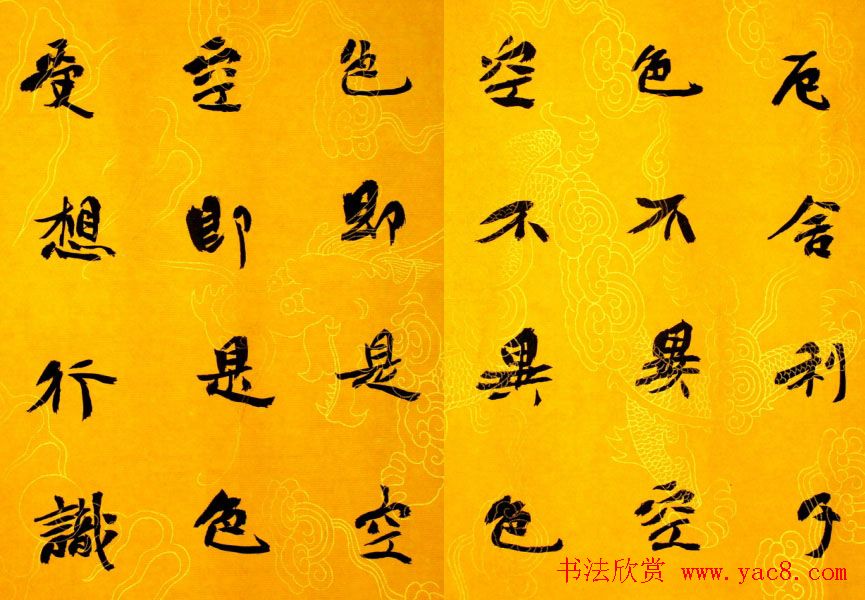 厄舍利子
色不異空
空不異色
色即是空
空即是色
受想行識
书法欣赏 www.yac8.com